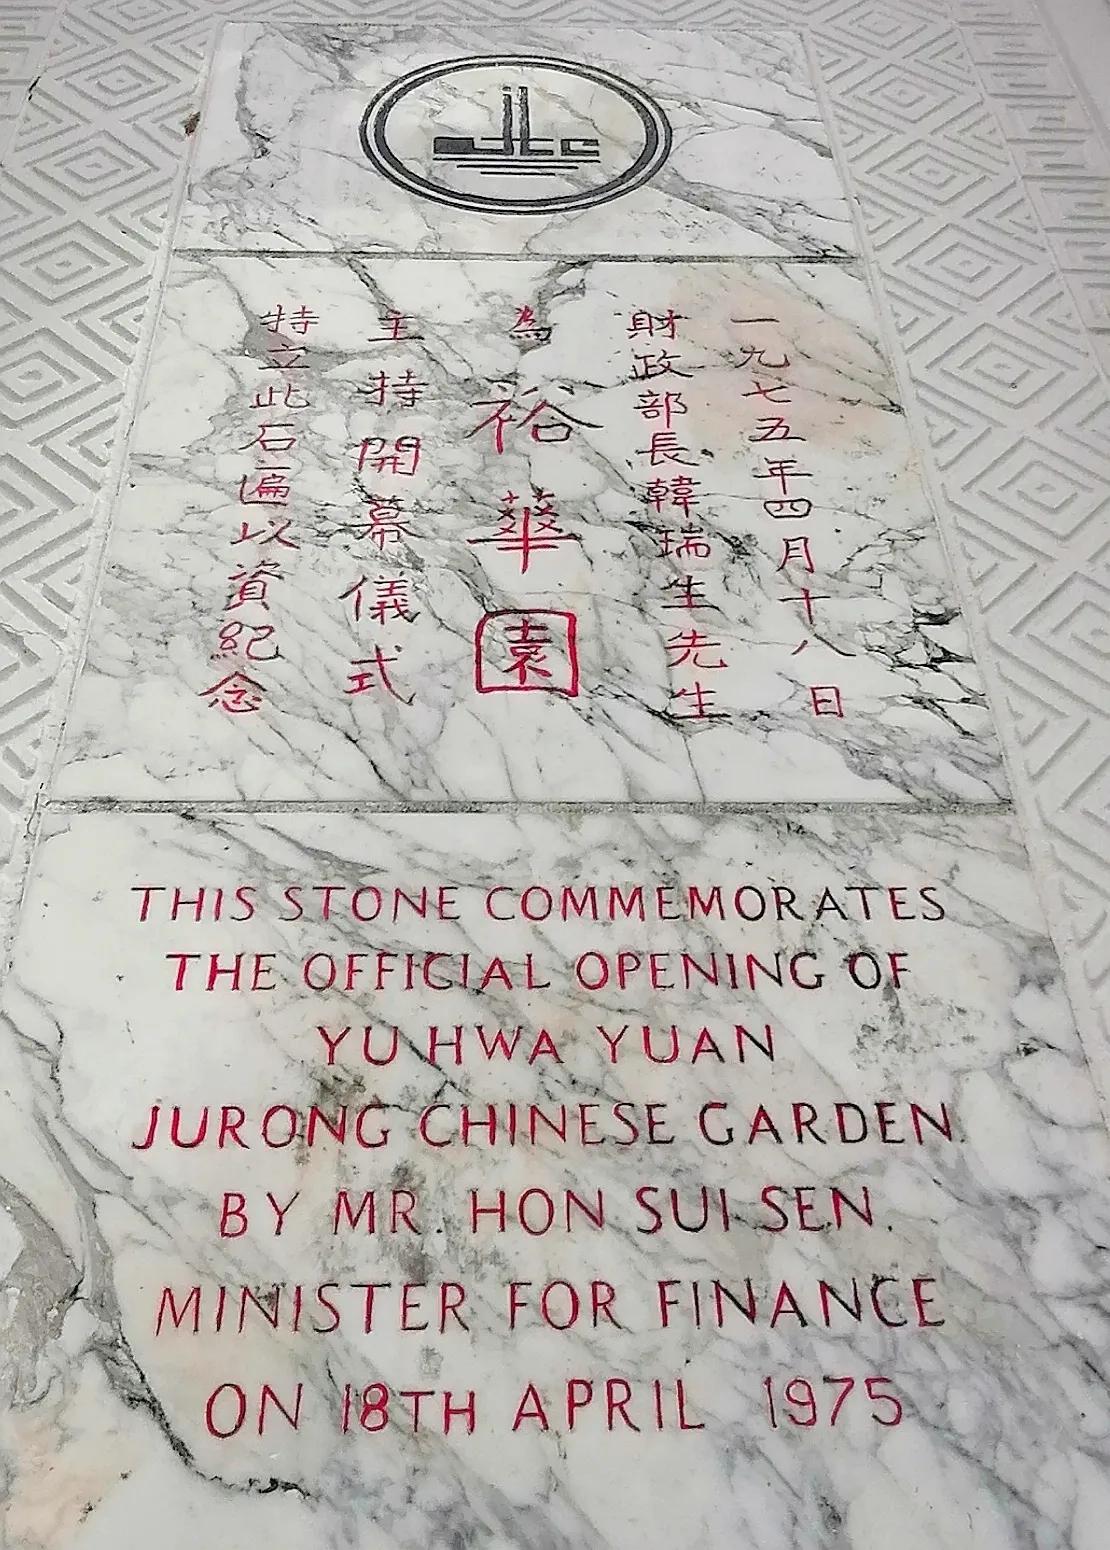 jtc
一九七五年四月十八日
財政部長韓瑞生先生
為裕華園
主持開幕儀式
特立此石匾以資紀念
THIS STONE COMMEMORATES
THE OFFICIAL OPENING OF
YU HWA YUAN
JURONG CHINESE GARDEN
BY MR. HON SUI SEN.
MINISTER FOR FINANCE
ON 18TH APRIL 1975